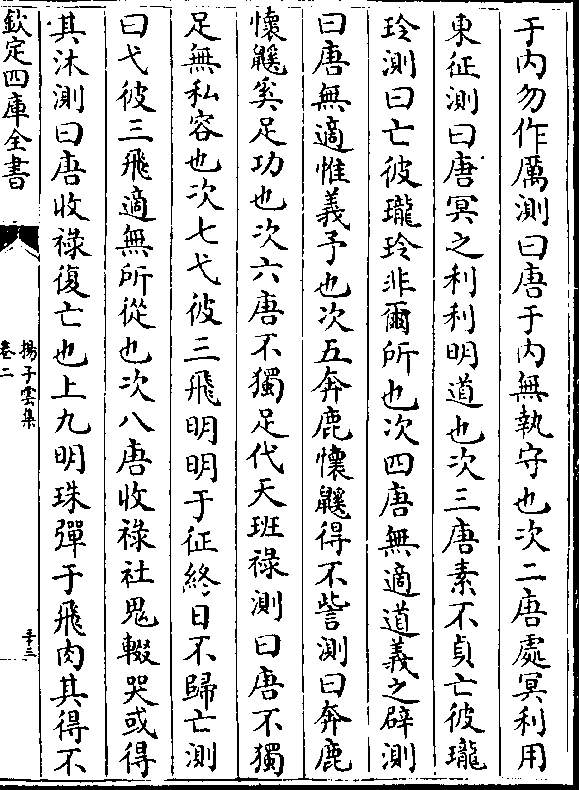 于内勿作厲測曰唐于内無執守也次二唐處冥利用
東征測曰唐冥之利利明道也次三唐素不貞亡彼瓏
玲測曰亡彼瓏玲非爾所也次四唐無適道義之辟測
曰唐無適惟義予也次五奔鹿懷鼷得不訾測曰奔鹿
懷鼷奚足功也次六唐不獨足代天班祿測曰唐不獨
足無私容也次七弋彼三飛明明于征終日不歸亡測
曰弋彼三飛適無所從也次八唐收祿社鬼輟哭或得
其沐測曰唐收祿復亡也上九明珠彈于飛肉其得不
欽定四庫全書
揚子雲集
卷二
三十三